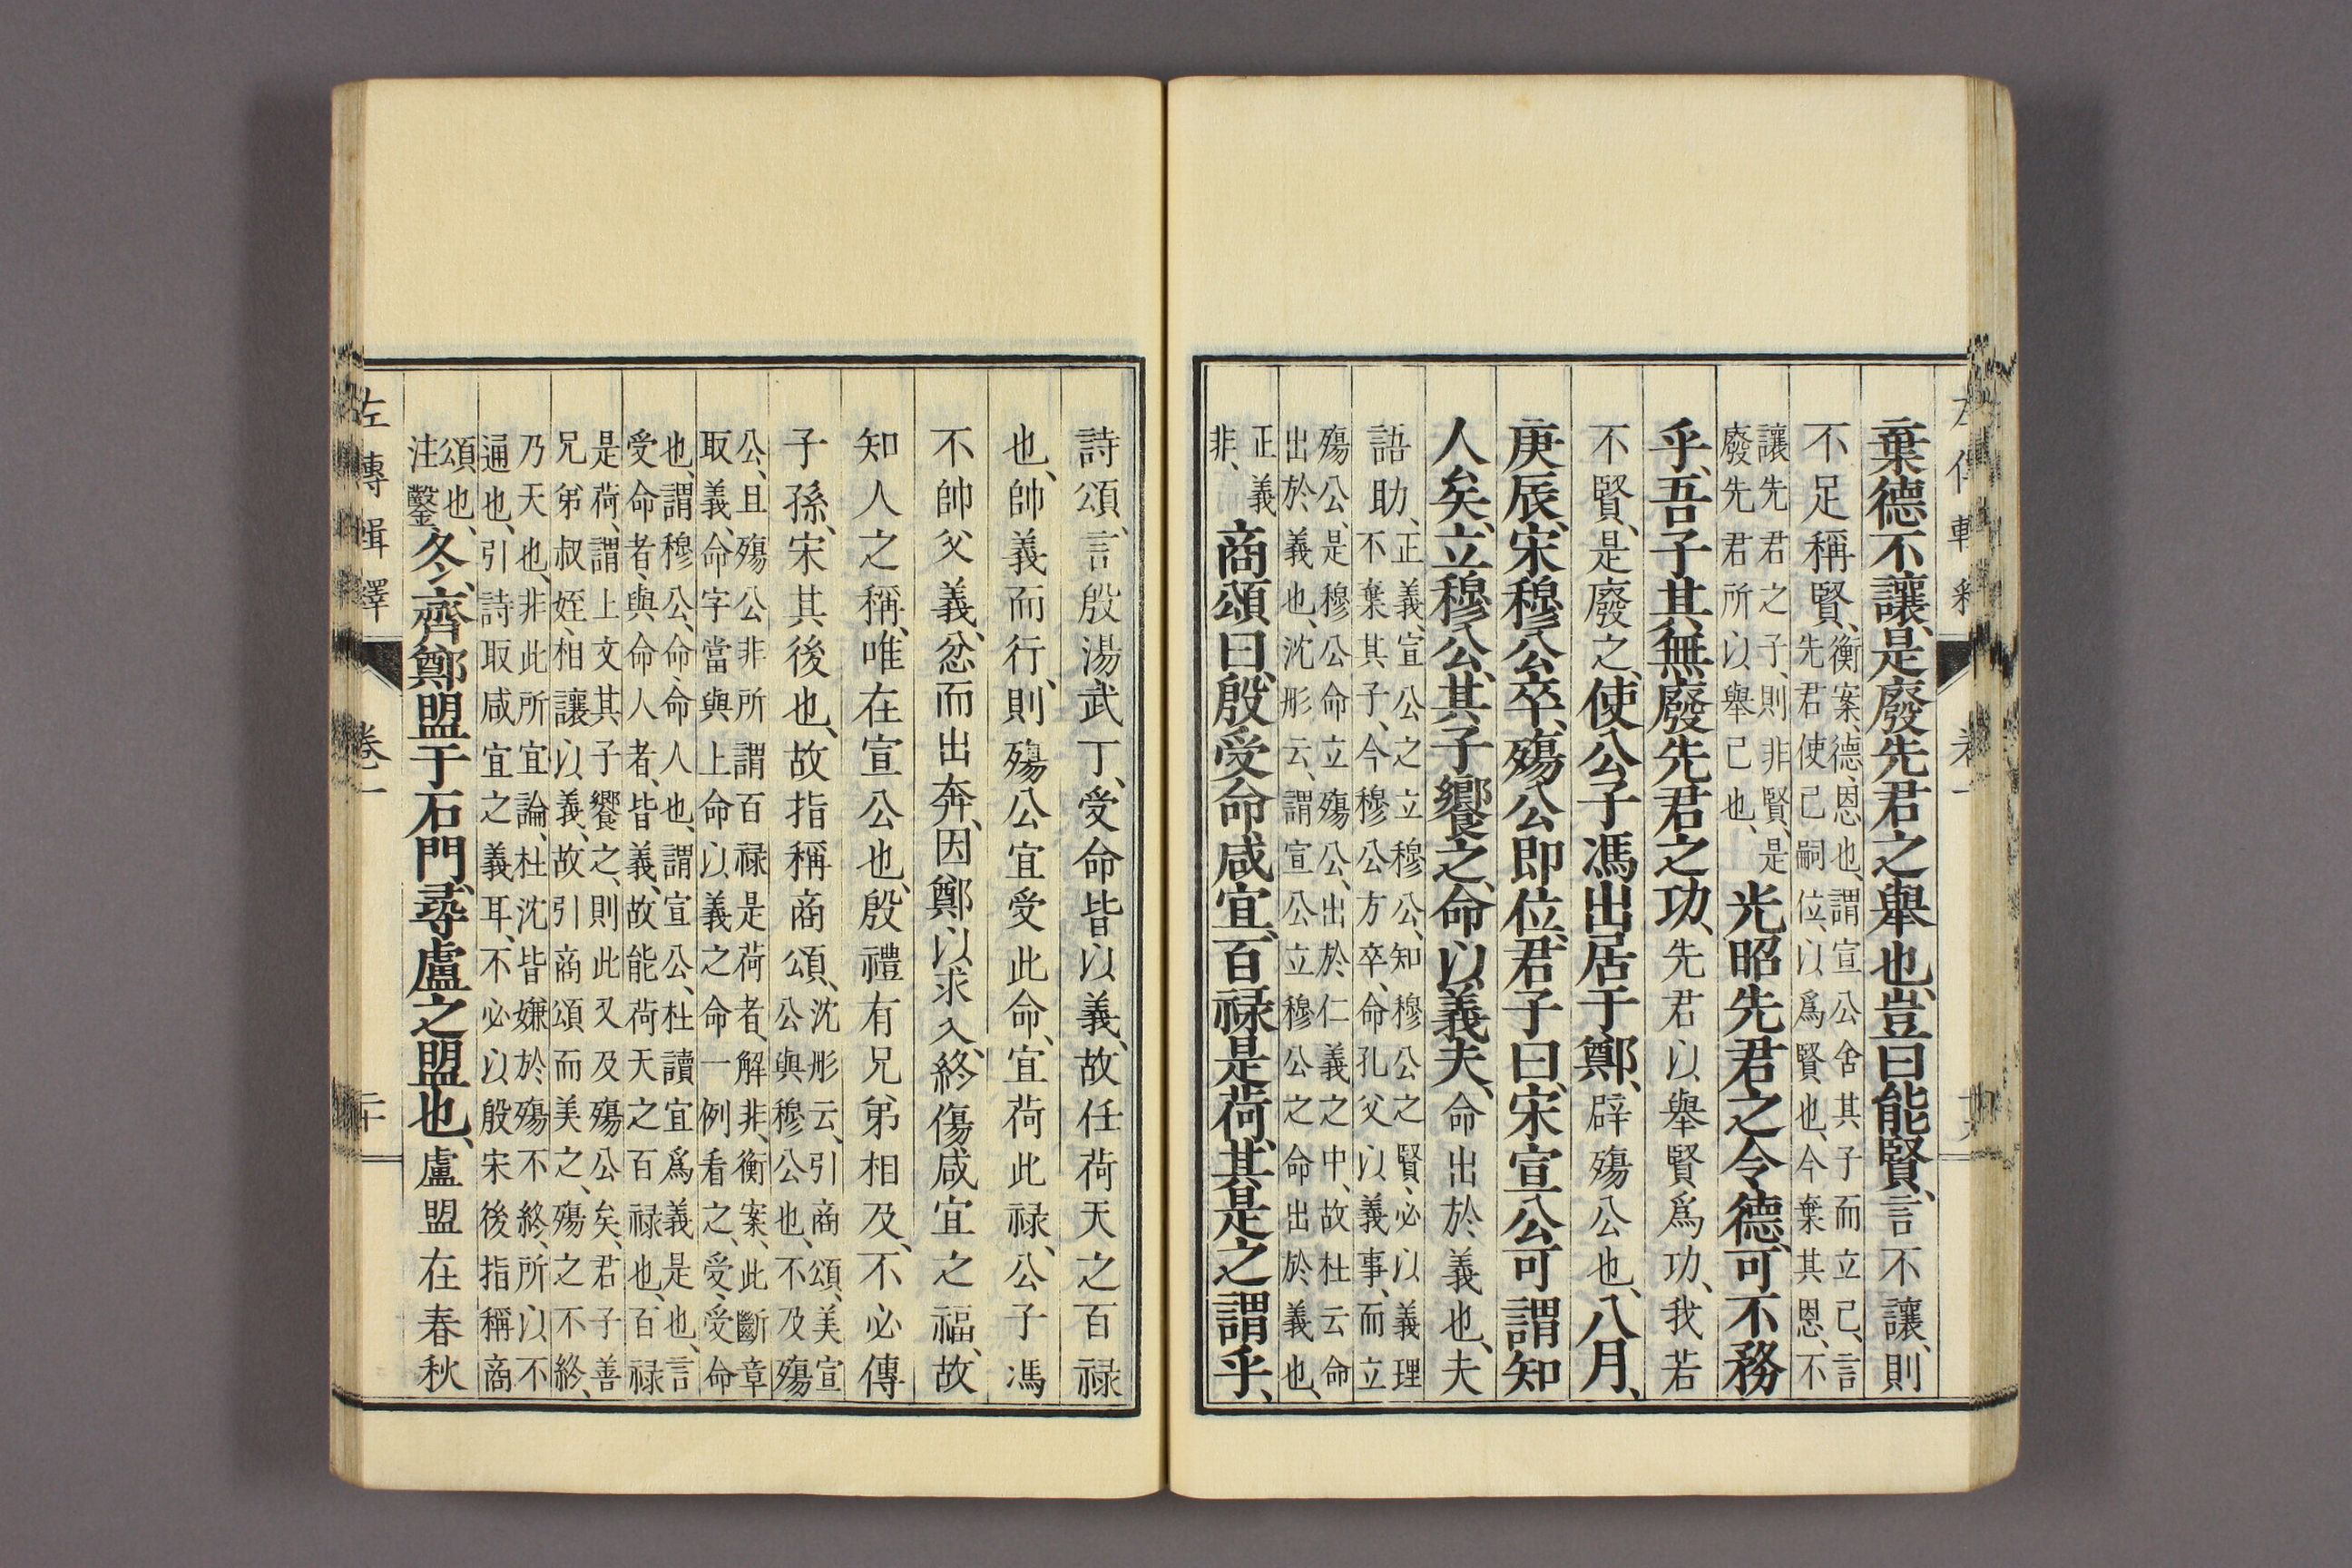 棄德不讓、是廢先君之舉也、豈曰能賢、言不讓、則
不足稱賢、衡案、德、恩也、謂宣公舍其子而立己、言
先君使己嗣位、以爲賢也、今棄其恩、不
讓先君之子、則非賢、是
廢先君所以舉己也、光昭先君之令德、可不務
乎、吾子其無廢先君之功、先君以舉賢爲功、我若
不賢、是廢之、使公子馮出居于鄭、辟殤公也、八月、
庚辰、宋穆公卒、殤公即位、君子曰、宋宣公可謂知
人矣、立穆公、其子饗之、命以義夫、命出於義也、夫
語助、正義、宣公之立穆公、知穆公之賢、必以義理
不棄其子、今穆公方卒、命孔父以義事、而立
殤公、是穆公命立殤公、出於仁義之中、故杜云命
出於義也、沈彤云、謂宣公立穆公之命出於義也、
正義
非、商頌曰、殷受命咸宜、百禄是荷、其是之謂乎、
詩頌、言殷湯武丁、受命皆以義、故任荷天之百禄
也、帥義而行、則殤公宜受此命、宜荷此禄、公子馮
不帥父義、忿而出奔、因鄭以求入、終傷咸宜之福、故
知人之稱、唯在宣公也、殷禮有兄弟相及、不必傳
子孫、宋其後也、故指稱商頌、沈彤云、引商頌、美宣
公與穆公也、不及殤
公、且殤公非所謂百禄是荷者、解非、衡案、此斷章
取義、命字當與上命以義之命一例看之、受、受命
也、謂穆公、命、命人也、謂宣公、杜讀宜爲義是也、言
受命者、與命人者、皆義、故能荷天之百禄也、百禄
是荷、謂上文其子饗之、則此又及殤公矣、君子善
兄弟叔姪、相讓以義、故引商頌而美之、殤之不終、
乃天也、非此所宜論、杜沈皆嫌於殤不終、所以不
通也、引詩取咸宜之義耳、不必以殷宋後指稱商
頌也、
注鑿、冬、齊鄭盟于石門、尋盧之盟也、盧盟在春秋
左傳輯釋 卷一 二十